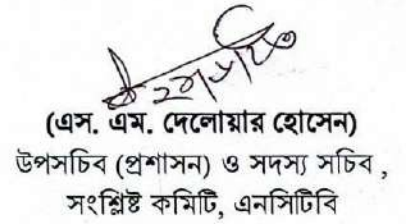 (এস. এম. দেলোয়ার হোসেন)
উপসচিব (প্রশাসন) ও সদস্য সচিব ,
সংশ্লিষ্ট কমিটি, এনসিটিবি